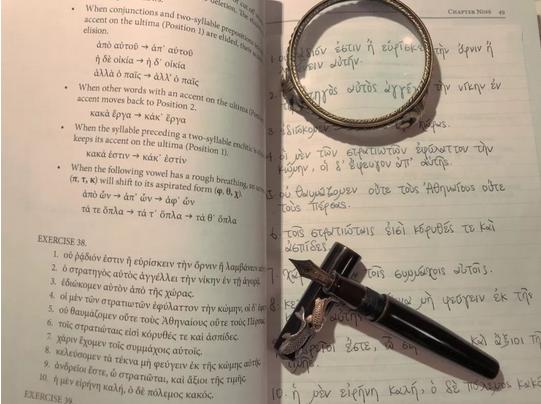 When conjunctions and two-syllable prepositions
accent on the ultima (Position 1) are elided, their
elision.
ἀπὸ αὐτοῦ → ἀπ’ αὐτοῦ
ἢ δὲ οἰκία → ἡ δ’ οἰκία
ἀλλὰ ὁ παῖς → ἀλλ’ ὁ παῖς
• When other words with an accent on the ultima (Position
accent moves back to Position 2.
κακὰ ἔργα → κάκ’ ἔργα
• When the syllable preceding a two-syllable enclitic is
keeps its accent on the ultima (Position 1).
κακά ἐστιν → κάκ’ ἐστίν
• When the following vowel has a rough breathing, an
(π, τ, κ) will shift to its aspirated form (φ, θ, χ).
ἀπὸ ὧν → ἀπ’ ὧν → ἀφ’ ὧν
τά τε ὅπλα → τά τ’ ὅπλα → τά θ’ ὅπλα
EXERCISE 38.
1. οὐ ῥᾴδιόν ἐστιν ἢ εὑρίσκειν τὴν ὄρνιν ἢ λαμβάνειν
2. ὁ στρατηγὸς αὐτὸς ἀγγέλλει τὴν νίκην ἐν τῇ ἀγορᾷ.
3. ἐδιώκομεν αὐτὸν ἀπὸ τῆς χώρας.
4. οἱ μὲν τῶν στρατιωτῶν ἐφύλαττον τὴν κώμην, οἱ δ’
5. οὐ θαυμάζομεν οὔτε τοὺς Ἀθηναίους οὔτε τοὺς Πέρσας.
6. τοῖς στρατιώταις εἰσὶ κόρυθές τε καὶ ἀσπίδες.
7. χάριν ἔχομεν τοῖς συμμάχοις αὐτοῖς.
8. κελεύσομεν τὰ τέκνα μὴ φεύγειν ἐκ τῆς κώμης αὐτῆς.
9. ἀνδρεῖοί ἐστε, ὦ στρατιῶται, καὶ ἄξιοι τῆς τιμῆς.
10. ἡ μὲν εἰρήνη καλή, ὁ δὲ πόλεμος κακός.
EXERCISE 39.
CHAPTER NINE 49
ἐστιν ἢ εὑρίσκειν τὴν ὄρνιν ἢ
αὐτήν.
2. αὐτὸς τὴν νίκην ἐν
3.
4. οἱ μὲν τῶν στρατιωτῶν ἐφύλαττον τὴν
κώμην, οἱ δ’ ἔφευγον ἀπ’ αὐτῆς.
5 οὐ θαυμάζομεν οὔτε τοὺς Ἀθηναίους οὔτε
τοὺς Πέρσας.
6 τοῖς στρατιώταις εἰσὶ κόρυθές τε καὶ
ἀσπίδες.
7. τοῖς συμμάχοις αὐτοῖς.
8. μὴ φεύγειν ἐκ τῆς
ἐστε, ὦ καὶ ἄξιοι τῆς
10. ἡ μὲν εἰρήνη καλή, ὁ δὲ πόλεμος κακός